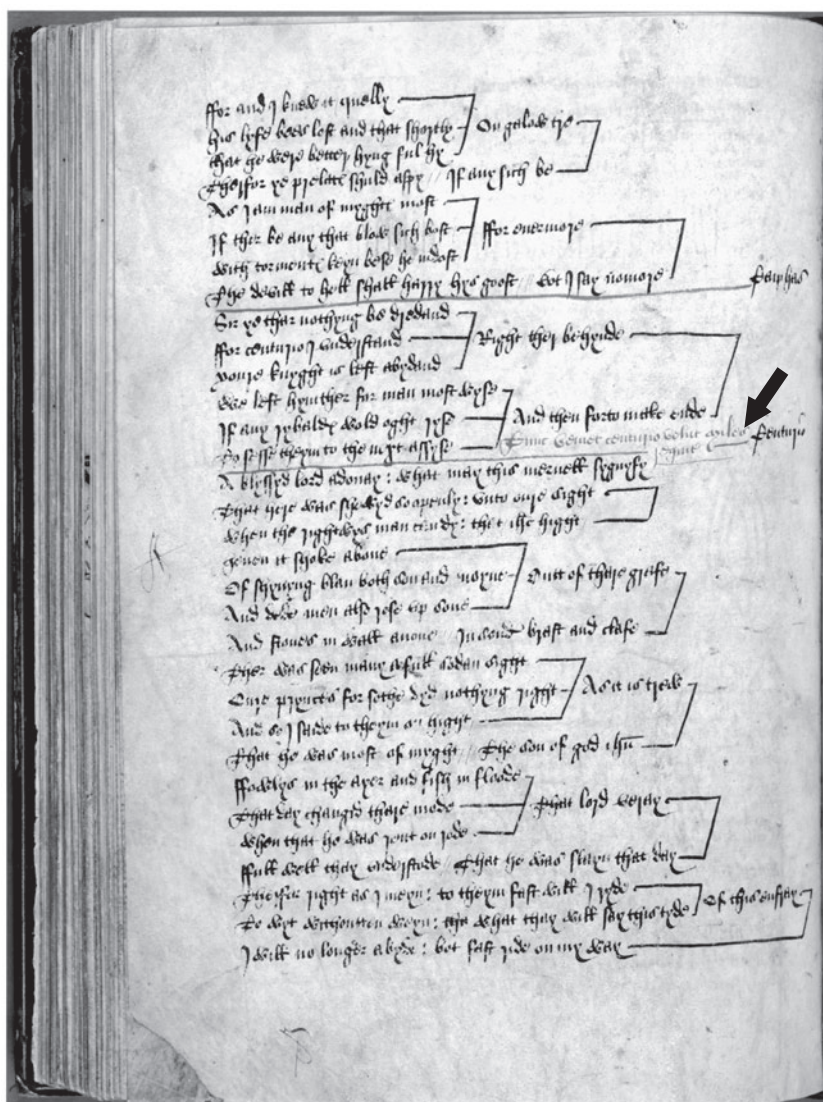 ffor and I knew it quelly
his lyfe bees lost and that shortly On galow tre
that he were better hyng ful hy
Therfor ye prelatꝭ shuld aspy // If any sich be
As I am man of myghtꝭ most
If ther be any that blow sich bost ffor euermore
with tormentꝭ keyn bese he indost
The devill to hell shall harry hys goost // Bot I say nomore Caiphas
Sir ye thar nothyng be dredand
ffor centurio I vnderstand Right ther behynde
youre knyght is left abydand
we left hym ther for man most wyse
If any rybaldꝭ wold oght ryse And then forto make ende
To sesse theym to the next assyse Tunc veniet centurio velut miles Centurio
equitans
A blyssyd lord adonay : what may this meruell sygnyfy
That here was shewyd so openly : vnto oure sight
when the rightwys man can dy : that ihc hight
heuen it shoke abone
Of shynyng blan both son and moyne Outt of thare grafe
And dede men also rose vp sone
And stones in wall anone // In sonder brast and clafe
Ther was seen many a full sodan sight
Oure prynces for sothe dyd nothyng right As it is trew
And so I saide to theym on hight
That he was most of myght // The son of god ihū
ffowlys in the ayer and fish in floode
That day changid thare mode That lord veray
when that he was rent on rode
ffull well thay vnderstode // That he was slayn that day
Therfor right as I meyn : to theym fast will I ryde Of this enfray
To wyt withoutten weyn : what thay will say this tyde
I will no longer abyde : bot fast ride on my way